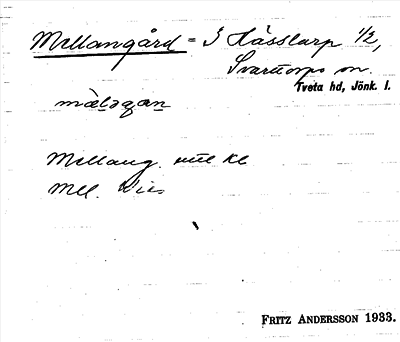 Mellangård = 3 Hässlarp 1/2,
Svarttorps sn.
Tveta hd, Jönk. l.
Mellang.
Mell.
FRITZ ANDERSSON 1933.